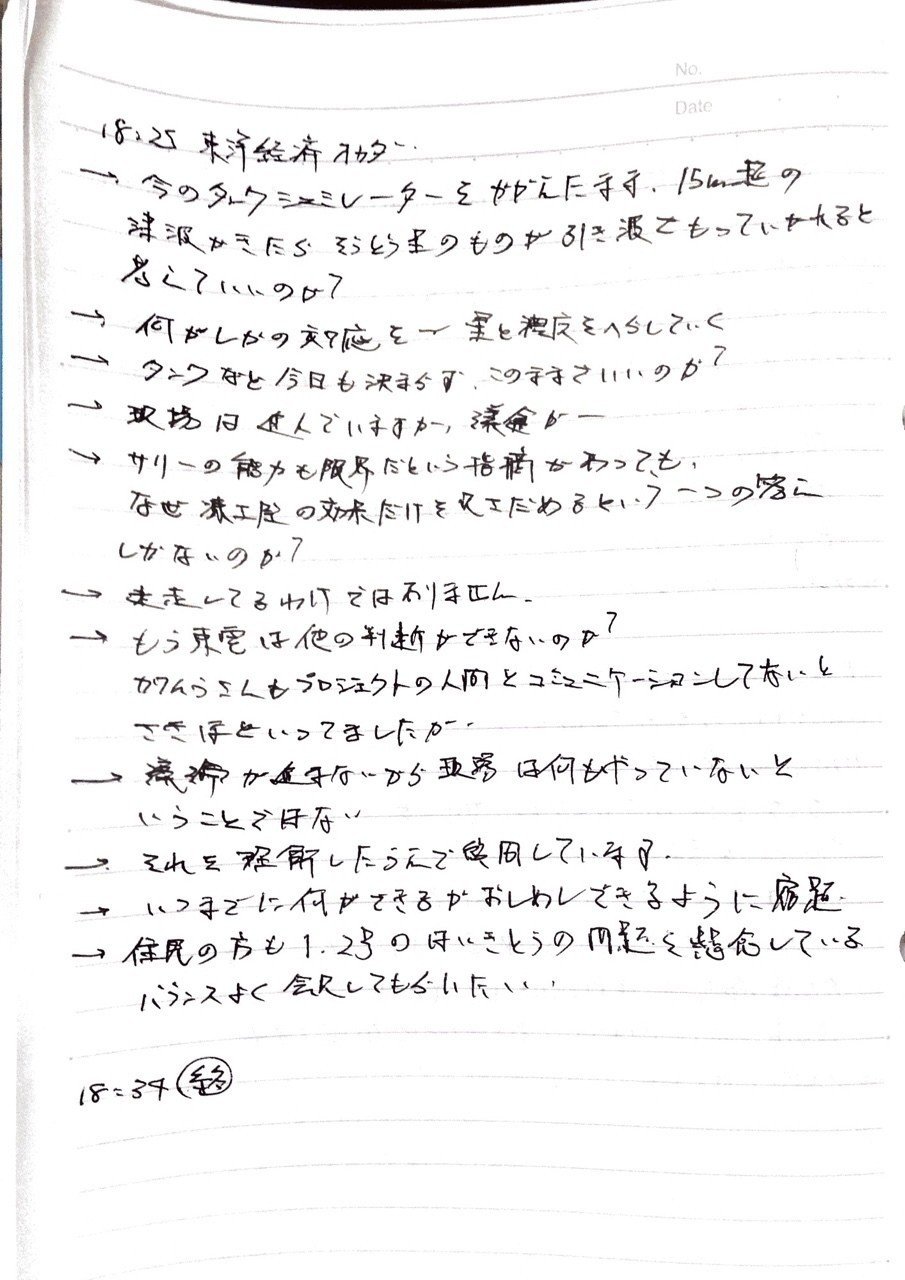 No.
Date
18:25 東洋経済オカダ‥
→ 今の シミュレーターを かかえたまま、15m超の
津波がきたら そうとう量のものが引き波でもっていかれると
考えていいのか?
→ 何がしかの対応を ー 量と濃度をへらしていく
→ タンクなど今日も決まらず、このままでいいのか?
→ 現場は進んでいますが、議論がー
→ サリーの能力も限界だという指摘があっても、
なぜ 凍土壁の効果だけを見さだめるという一つの答え
しかないのか?
→ 迷走してるわけではありません。
→ もう東電は他の判断ができないのか?
さんもプロジェクトの人間とコミュニケーションしてないと
さきほどいってましたが‥
→ 議論が進まないから現場は何もやっていないと
いうことではない
→ それを理解したうえで質問しています。
→ いつまでに何ができるかおしめしできるように宿題
→ 住民の方も1.2号のはいきとうの問題を懸念している
バランスよく してもらいたい‥
18:34 終